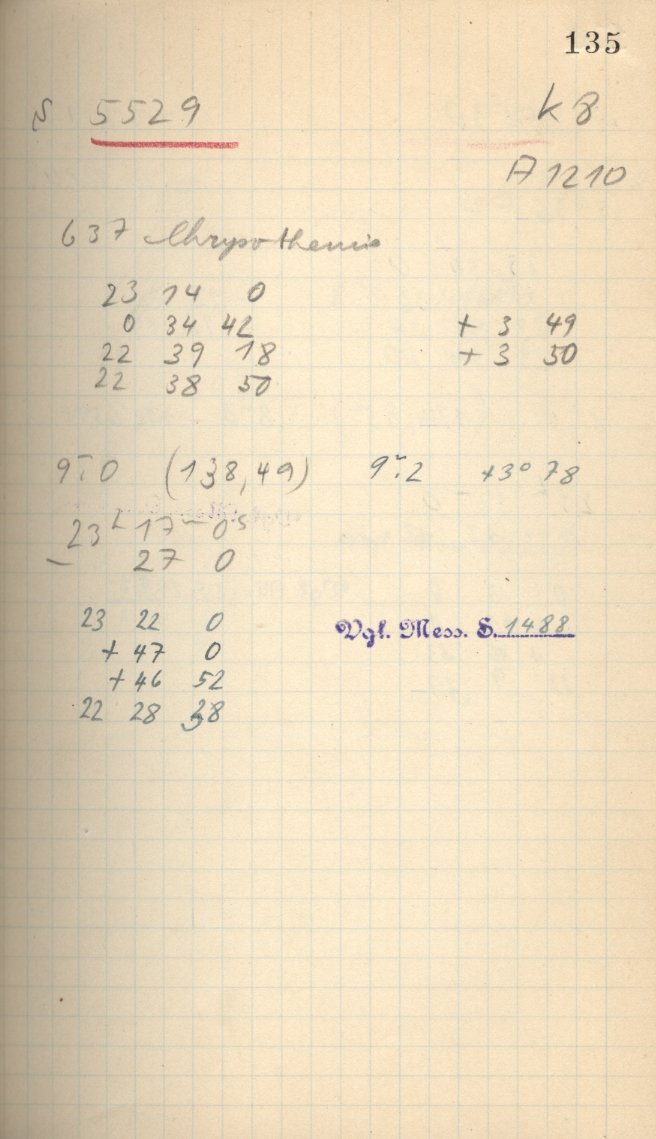 135
S 5529 K 8
A 1210
637 Chrysothemis
23 14 0
0 34 42 + 3 49
22 39 18 + 3 50
22 38 50
9m.0 (138,49) 9m.2 +3° 78
23h 17m 0s
— 27 0
23 22 0 Vgl. Mess. S. 1488
+ 47 0
+ 46 52
22 28 38